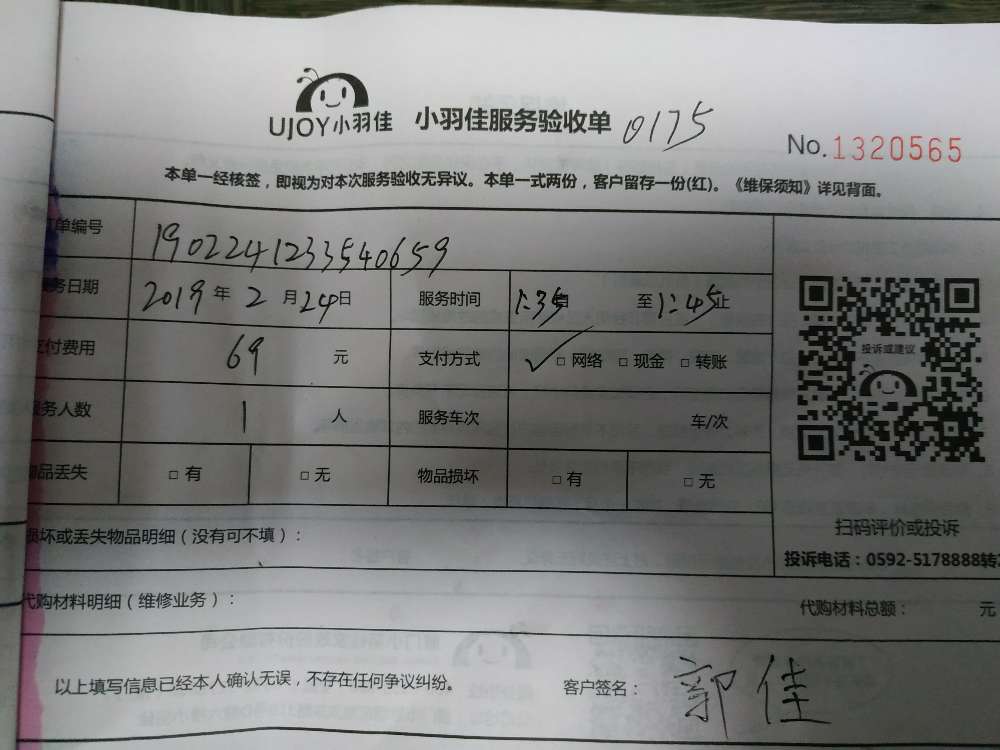 UJOY小羽佳 小羽佳服务验收单 0175
No.1320565
本单一经核签，即视为对本次服务验收无异议。本单一式两份，客户留存一份(红)。《维保须知》详见背面。
单编号 190224123354065​9
务日期 2019年2月24日 服务时间 1:35 至1:45止
付费用 69 元 支付方式 ✓□网络 □现金 □转账
务人数 1 人 服务车次 车/次
品丢失 □有 □无 物品损坏 □有 □无
投诉或建议
扫码评价或投诉
投诉电话：0592-5178888转
损坏或丢失物品明细（没有可不填）：
代购材料明细（维修业务）： 代购材料总额： 元
以上填写信息已经本人确认无误，不存在任何争议纠纷。 客户签名：郭佳